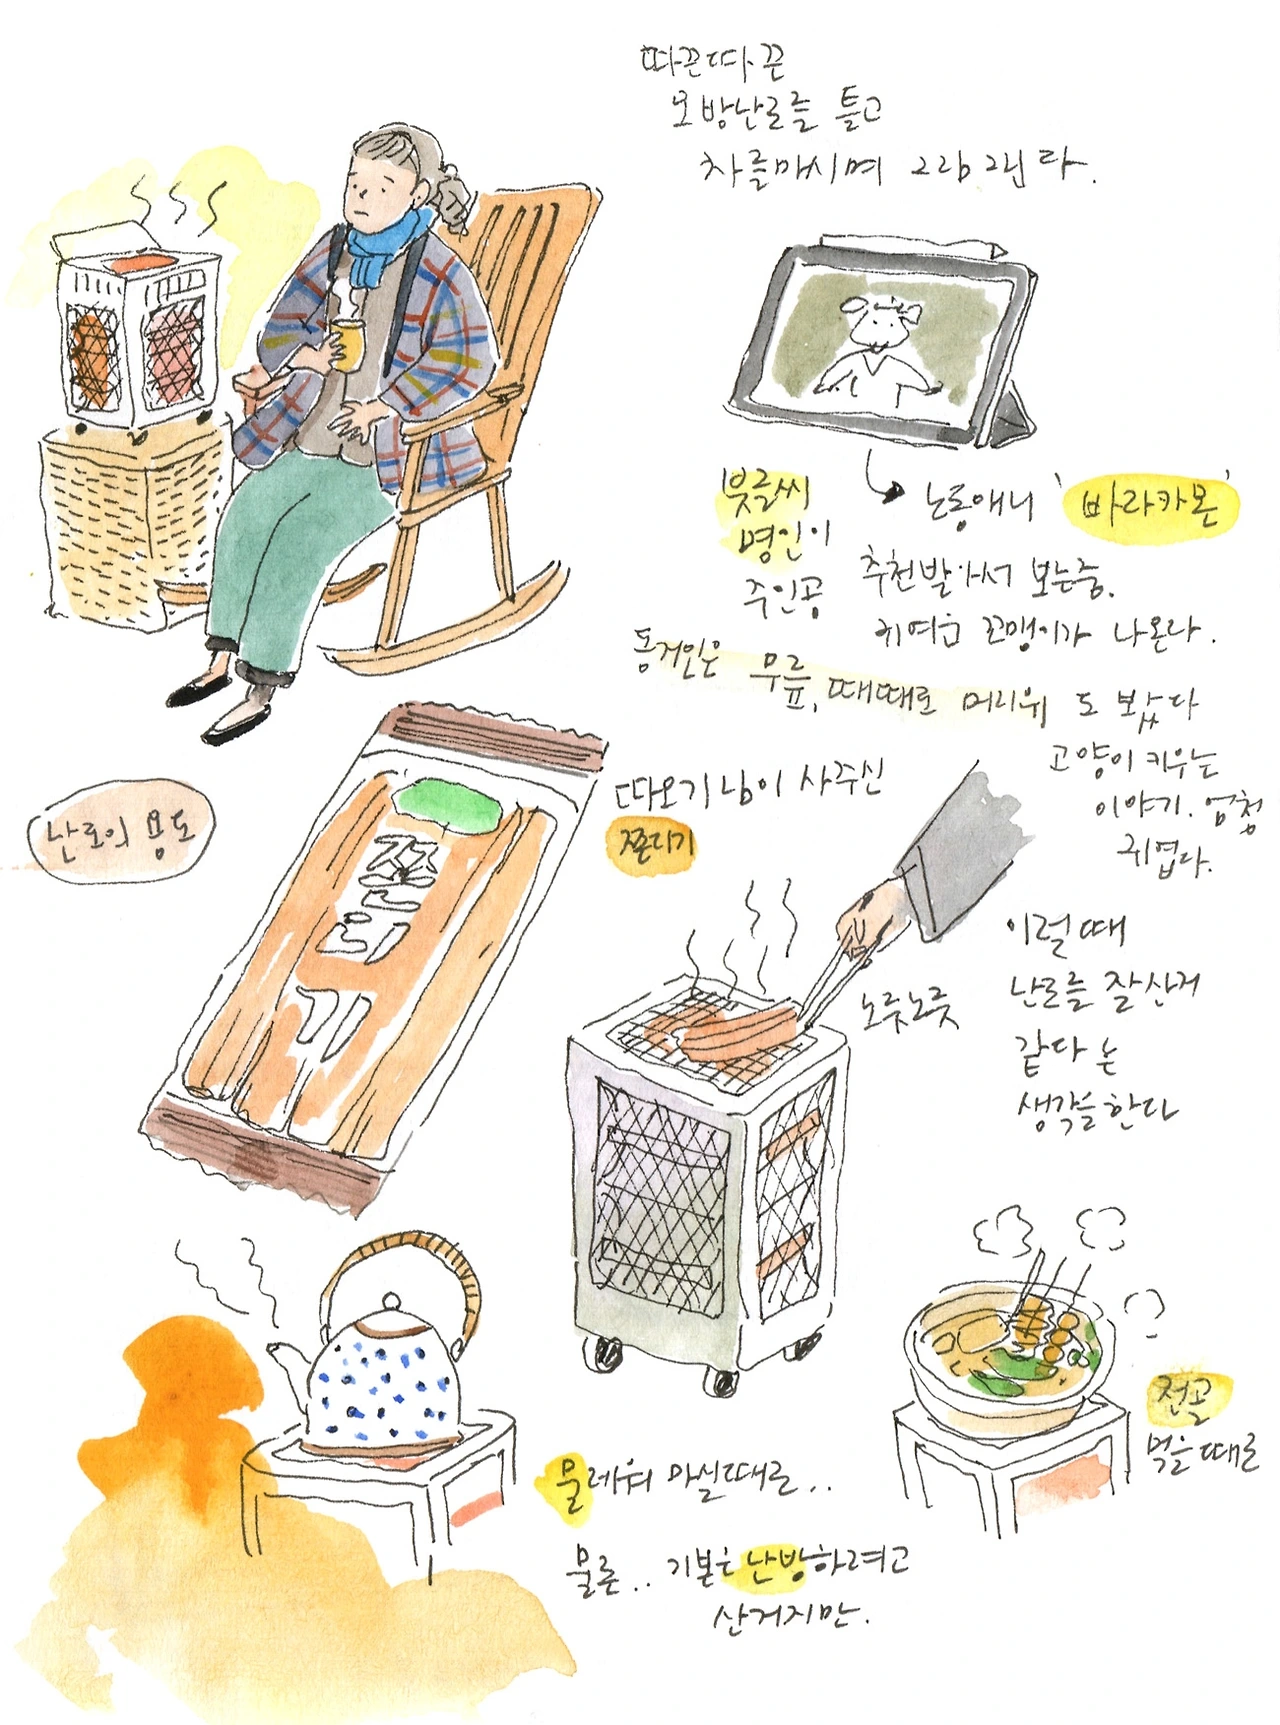 따끈따끈
오방난로를 틀고
차를마시며 그림 그린다.
붓글씨
명인이
주인공
농동애니 '바라카몬'
추천받아서 보는중.
귀여운 꼬맹이가 나온다.
동거인은 무릎, 때때로 머리위 도 봤다
고양이 키우는
이야기. 엄청
귀엽다.
난로의 용도
쫀디기
따오기님이 사주신
쫀디기
노릇노릇
이럴때
난로를 잘산거
같다 는
생각을한다
전골
먹을때로
물데워 마실때로..
물론.. 기본은 난방하려고
산거지만.